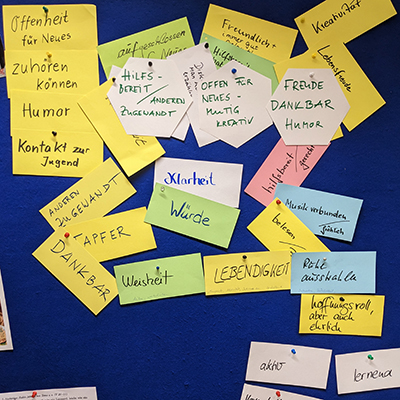 Offenheit
für Neues
zuhören
können
Humor
Kontakt zur
Jugend
aufgeschlossen
Freundlich +
immer gut
Kreativität
Lebensfreude
HILFS-
BEREIT /
ANDEREN
ZUGEWANDT
OFFEN FÜR
NEUES -
MUTIG
KREATIV
FREUDE
DANKBAR
HUMOR
hilfsbereit
gerecht
ANDEREN
ZUGEWANDT
Klarheit
Würde
TAPFER
DANKBAR
Musik verbunden
belesen
Weisheit
LEBENDIGKEIT
RUHE
ausstrahlen
hoffnungsvoll,
aber auch
ehrlich
aktiv
lernend